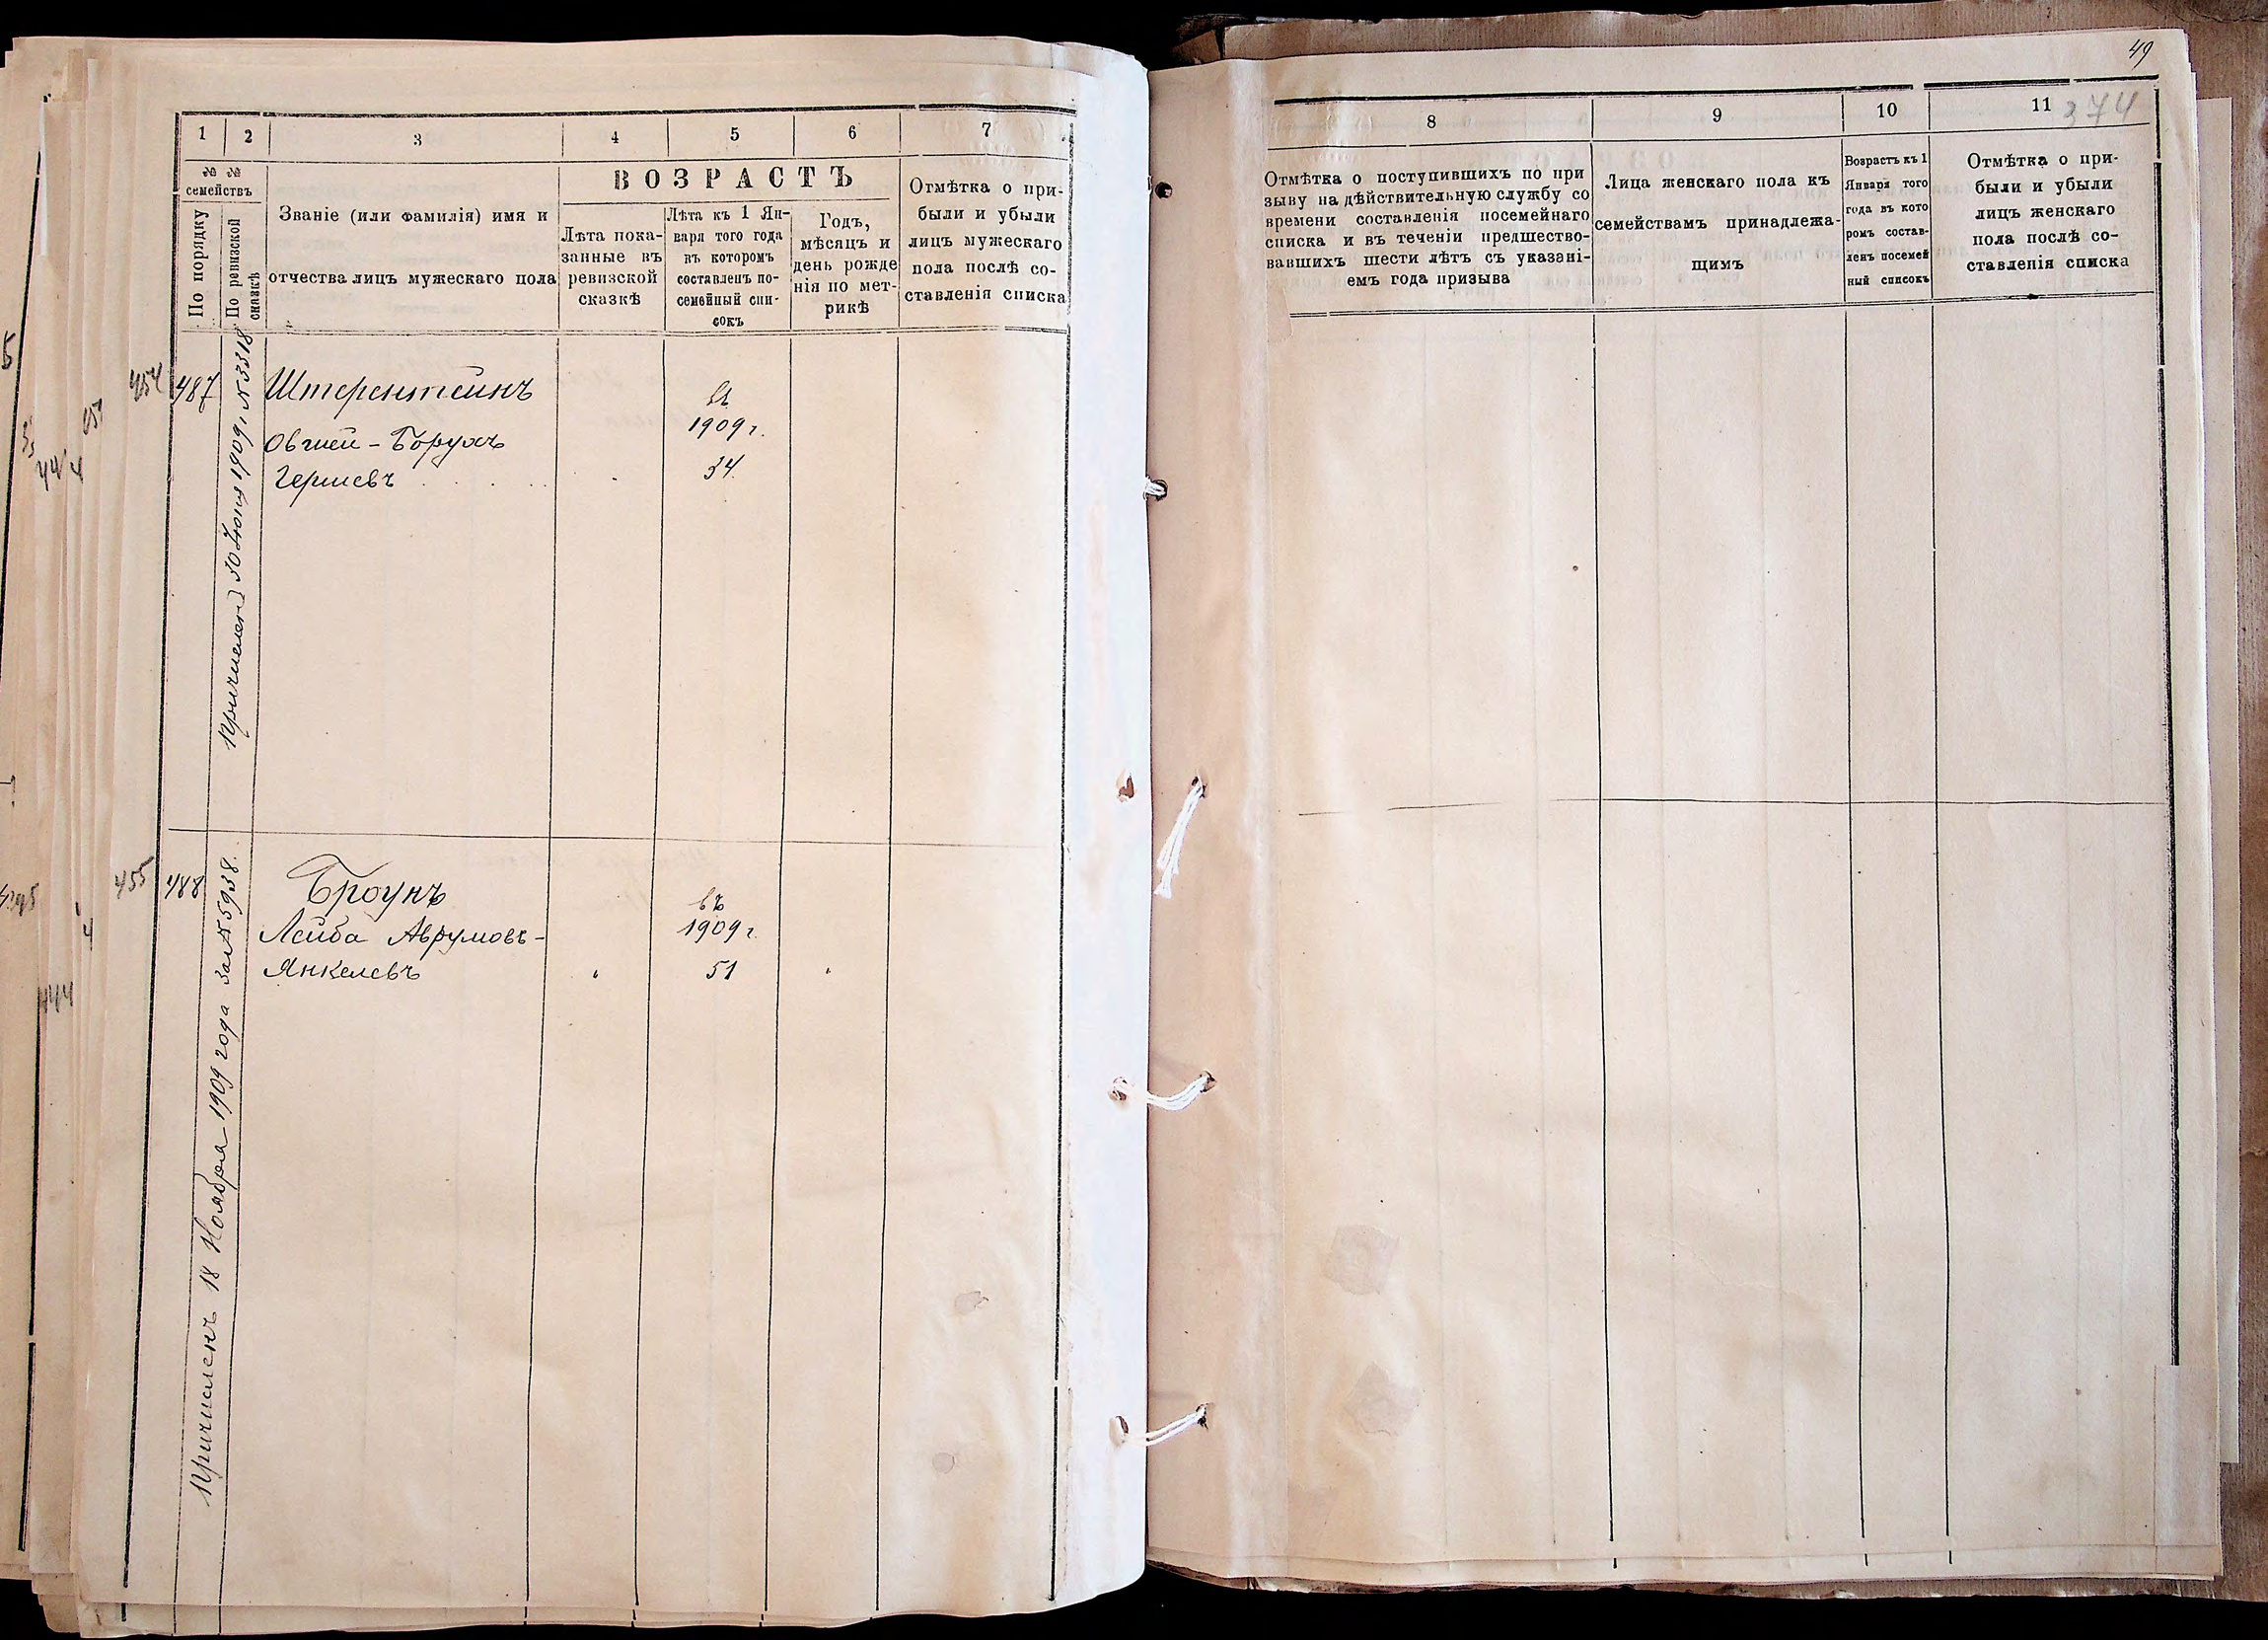 1 2 3 4 5 6 7
№ № семействъ
По порядку
По ревизской сказкѣ
Званіе (или фамилія) имя и
отчества лицъ мужескаго пола
ВОЗРАСТЪ
Лѣта пока-
занные въ
ревизской
сказкѣ
Лѣта къ 1 Ян-
варя того года
въ которомъ
составленъ по-
семейный спи-
сокъ
Годъ,
мѣсяцъ и
день рожде
нія по мет-
рикѣ
Отмѣтка о при-
были и убыли
лицъ мужескаго
пола послѣ со-
ставленія списка
454 487
Причисленъ 30 Іюня 1909 г №3318
Штеренштейнъ
Овшей-Борухъ
Гершевъ
въ
1909 г.
34
455 488
Причисленъ 18 Ноября 1909 года за №5938.
Броунъ
Лейба Аврумовъ-
Янкелевъ
въ
1909 г.
51
49
374
8 9 10 11
Отмѣтка о поступившихъ по при
зыву на дѣйствительную службу со
времени составленія посемейнаго
списка и въ теченіи предшество-
вавшихъ шести лѣтъ съ указані-
емъ года призыва
Лица женскаго пола къ
семействамъ принадлежа-
щимъ
Возрастъ къ 1
Января того
года въ кото
ромъ состав-
ленъ посемей
ный списокъ
Отмѣтка о при-
были и убыли
лицъ женскаго
пола послѣ со-
ставленія списка